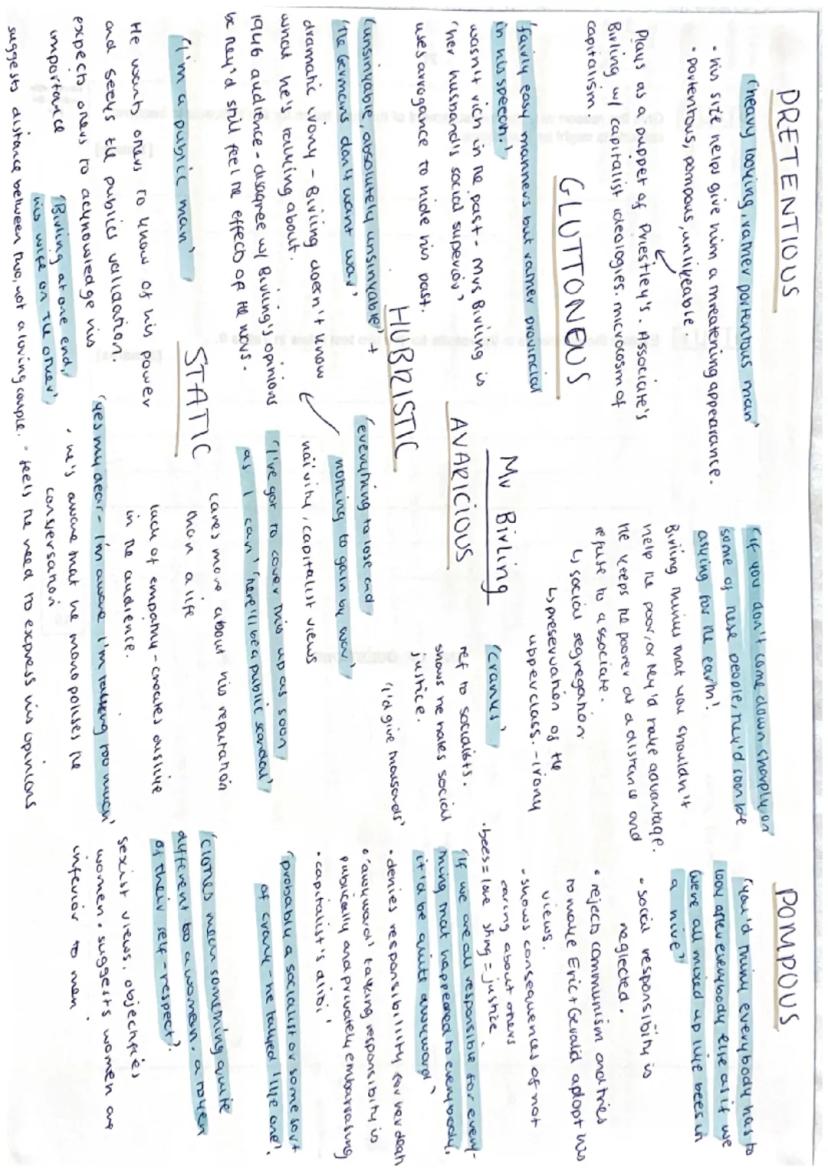 PRETENTIOUS
'heavy looking, rather portentous man'
• his size helps give him a threatening appearance.
• portentous, pompous, unlikeable.
Plays as a puppet of Priestley's. Associate's
Birling w/ capitalist ideologies. microcosm of
capitalism
GLUTTONEUS
'fairly easy manners but rather provincial
in his speech.'
wasn't rich in the past - Mrs Birling is
'her husband's social superior'
uses arrogance to hide his past.
HUBRISTIC
'unsinkable, absolutely unsinkable' +
'the Germans don't want war'
dramatic irony - Birling doesn't know
what he's talking about.
1946 audience - disagree w/ Birling's opinions
bc they'd still feel the effects of the wars.
STATIC
'I'm a public man'
He wants others to know of his power
and seeks the publics validation.
expects others to acknowledge his
importance
'Birling at one end,
his wife on the other'
suggests distance between two, not a loving couple.
'if you don't come down sharply on
some of these people, they'd soon be
asking for the earth'.
Birling thinks that you shouldn't
help the poor, or they'd have advantage.
He keeps the poorer at a distance and
refuse to associate.
↳ social segregation
↳ preservation of the
upperclass. - irony
Mr Birling
AVARICIOUS
'Cranks'
ref to socialists.
shows he hates social
justice.
'I'd give thousands'
'everything to lose and
nothing to gain by war'
naivity, capitalist views
'I've got to cover this up as soon
as I can' 'there'll be a public scandal'
cares more about his reputation
than a life
lack of empathy - creates dislike
in the audience.
'yes my dear - I'm aware I'm talking too much'
• he's aware that he monopolises the
conversation
• feels the need to express his opinions
POMPOUS
'you'd think everybody has to
look after everybody else as if we
were all mixed up like bees in
a hive'
• social responsibility is
neglected.
• rejects communism and tries
to make Eric + Gerald adopt his
views.
• shows consequences of not
caring about others
• bees = love sting = justice
'If we are all responsible for every-
thing that happened to everybody,
it'd be quite awkward'
• denies responsibility for her death
• 'awkward' taking responsibility is
publically and privately embarrassing
• capitalist's alibi
'probably a socialist or some sort
of crank - he talked like one'.
'Clothes mean something quite
different to a woman. a token
of their self-respect'.
sexist views. objectifies
women. suggests women are
inferior to men.